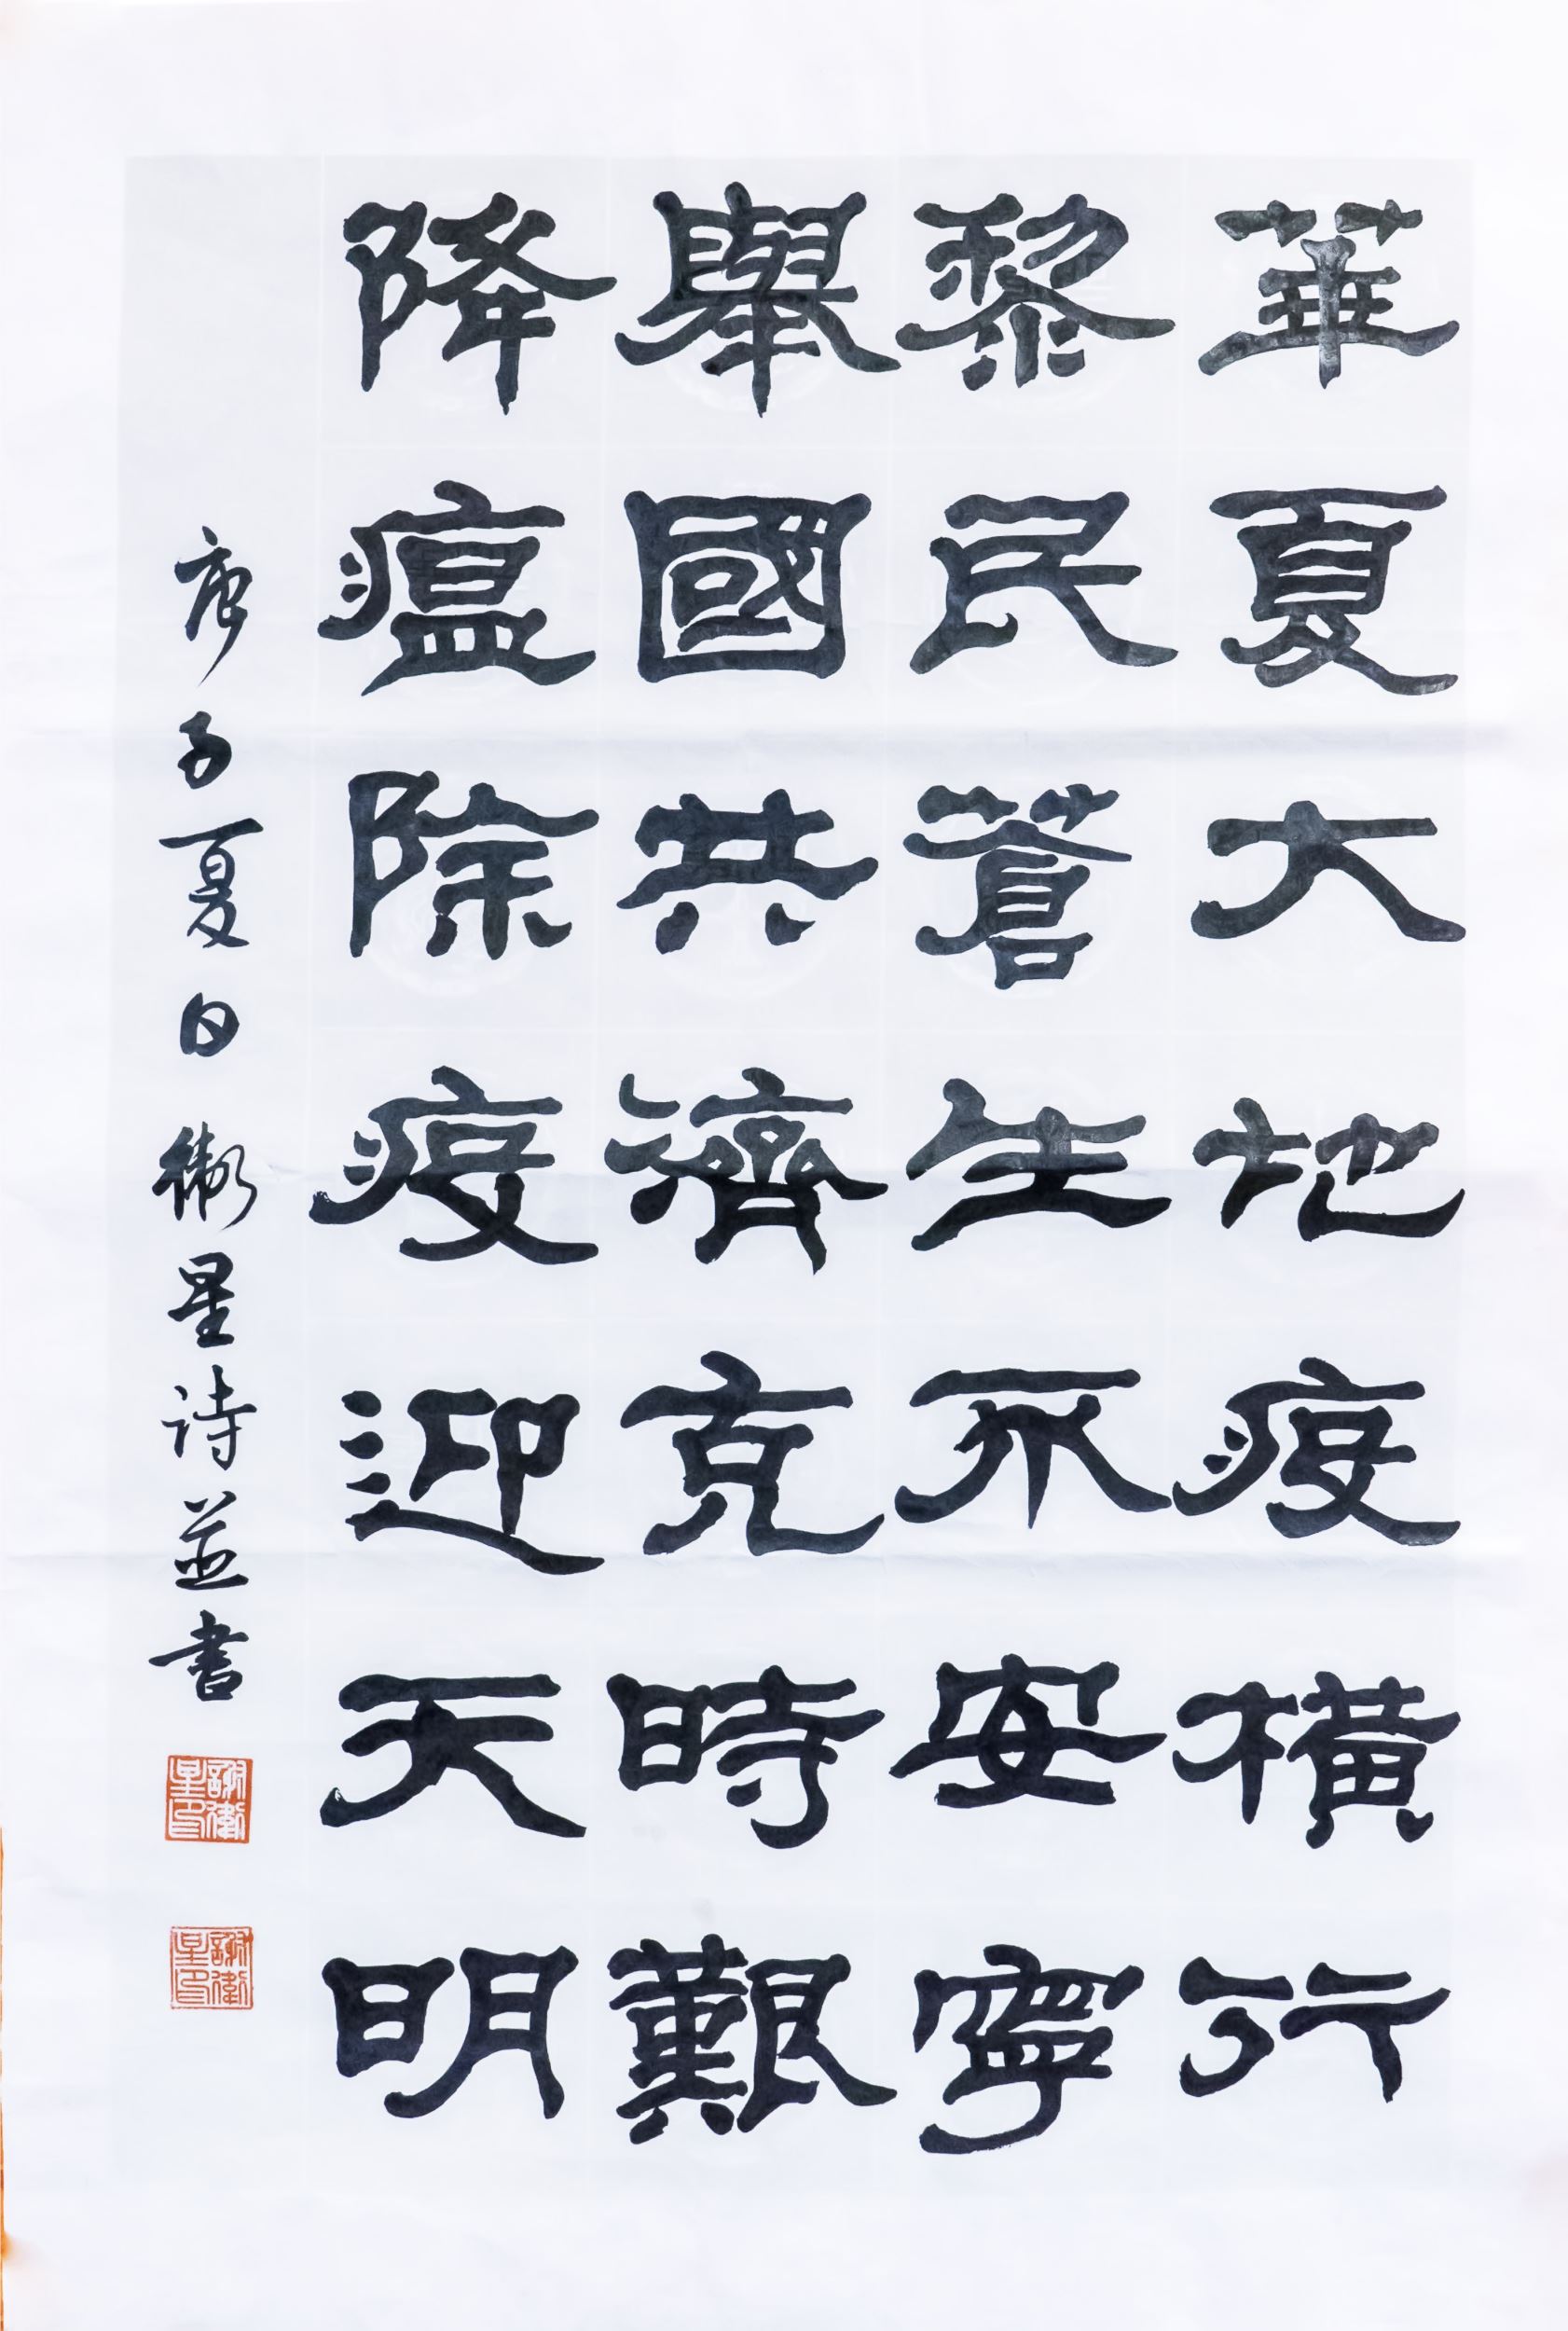 華夏大地疫橫行
黎民蒼生不安寧
舉國共濟克時艱
降瘟除疫迎天明
庚子夏日衛星诗並書
謝衛星印
謝衛星印